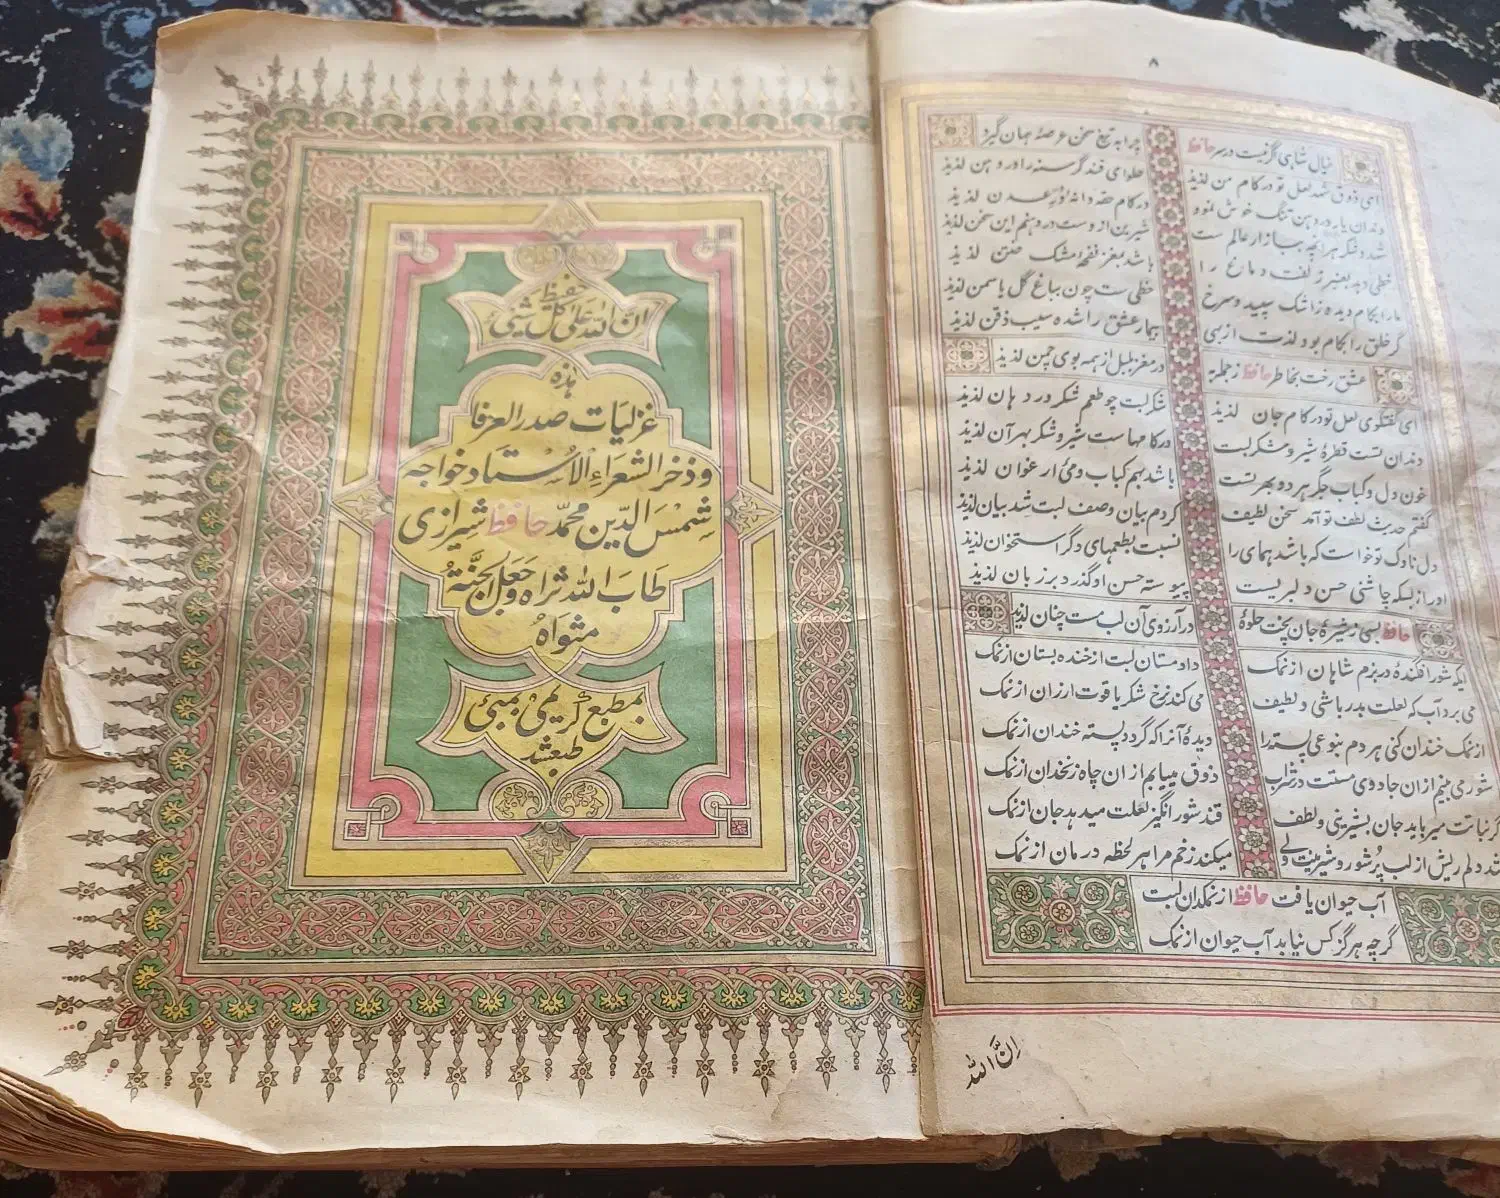 ۸
خیال شاهی اگر نیست در سر حافظ چرا به تیغ سخن عرصهٔ جهان گیرد
ای ذوق شهد لعل تو در کام من لذیذ حلوای قند گرسنه را در دهن لذیذ
دندان یار در دهن تنگ خوش نمود در کام حقه دانه عدن لذیذ
هر آنچه ببازار عالم ست شیرین از وست در دهنم این سخن لذیذ
خطی دهد بعنبر زلفت دماغ را باشد بمغز نفحهٔ مشک ختن لذیذ
ما را بجام دیده ز اشک سپید و سرخ خطی ست چون بباغ گل یاسمن لذیذ
گر خلق را بکام بود لذت از بهی بیمار عشق را شده سیب ذقن لذیذ
عشق رخت بخاطر حافظ ز جمله به در مغز بلبل از همه بوی چمن لذیذ
ای گفتگوی لعل تو در کام جان لذیذ شکر لبت چو طعم شکر در دهان لذیذ
دندان تست قطرهٔ شیر و شکر لبت در کامهاست شیر و شکر بهر آن لذیذ
خون دل و کباب جگر هر دو بهر تست باشد بهم کباب و می ارغوان لذیذ
گفتم حدیث لطف تو آمد سخن لطیف کردم بیان وصف لبت شد بیان لذیذ
دل ناوک تو خواست که باشد همای را نسبت بطعمهای دگر استخوان لذیذ
اور از بسکه چاشنی حسن دلبریست پیوسته حسن او گذرد بر زبان لذیذ
حافظ بسی ذخیرهٔ جان پخت حلوهٔ در آرزوی آن لب مست چنان لذیذ
ایکه شور افکندهٔ در بزم شاهان از نمک داد مستان لبت از خنده بستان از نمک
می برد آب که لعلت بدر باشی و لطیف می کند نرخ شکر یاقوت ارزان از نمک
از نمک خندان کنی هر دم بنوعی پسته را دیدهٔ آنرا که گردد پسته خندان از نمک
شور می بینم از ان جادوی مستت در شراب ذوق مییابم از ان چاه زنخدان از نمک
گر نباتت میرباید جان بشیرینی و لطف قند شور انگیز لعلت میدهد جان از نمک
شد دلم ریش از لب پر شور و شیرینت ولی میکند زخم مرا هر لحظه درمان از نمک
آب حیوان یافت حافظ از نمکدان لبت
گرچه هرگز کس نیابد آب حیوان از نمک
ان الله
ان الله علی کل شئ حفیظ
هذه
غزلیات صدر العرفا
و ذخر الشعراء الاستاد خواجه
شمس الدین محمد حافظ شیرازی
طاب الله ثراه و جعل الجنة
مثواه
بمطبع کریمی بمبئی
طبع شد